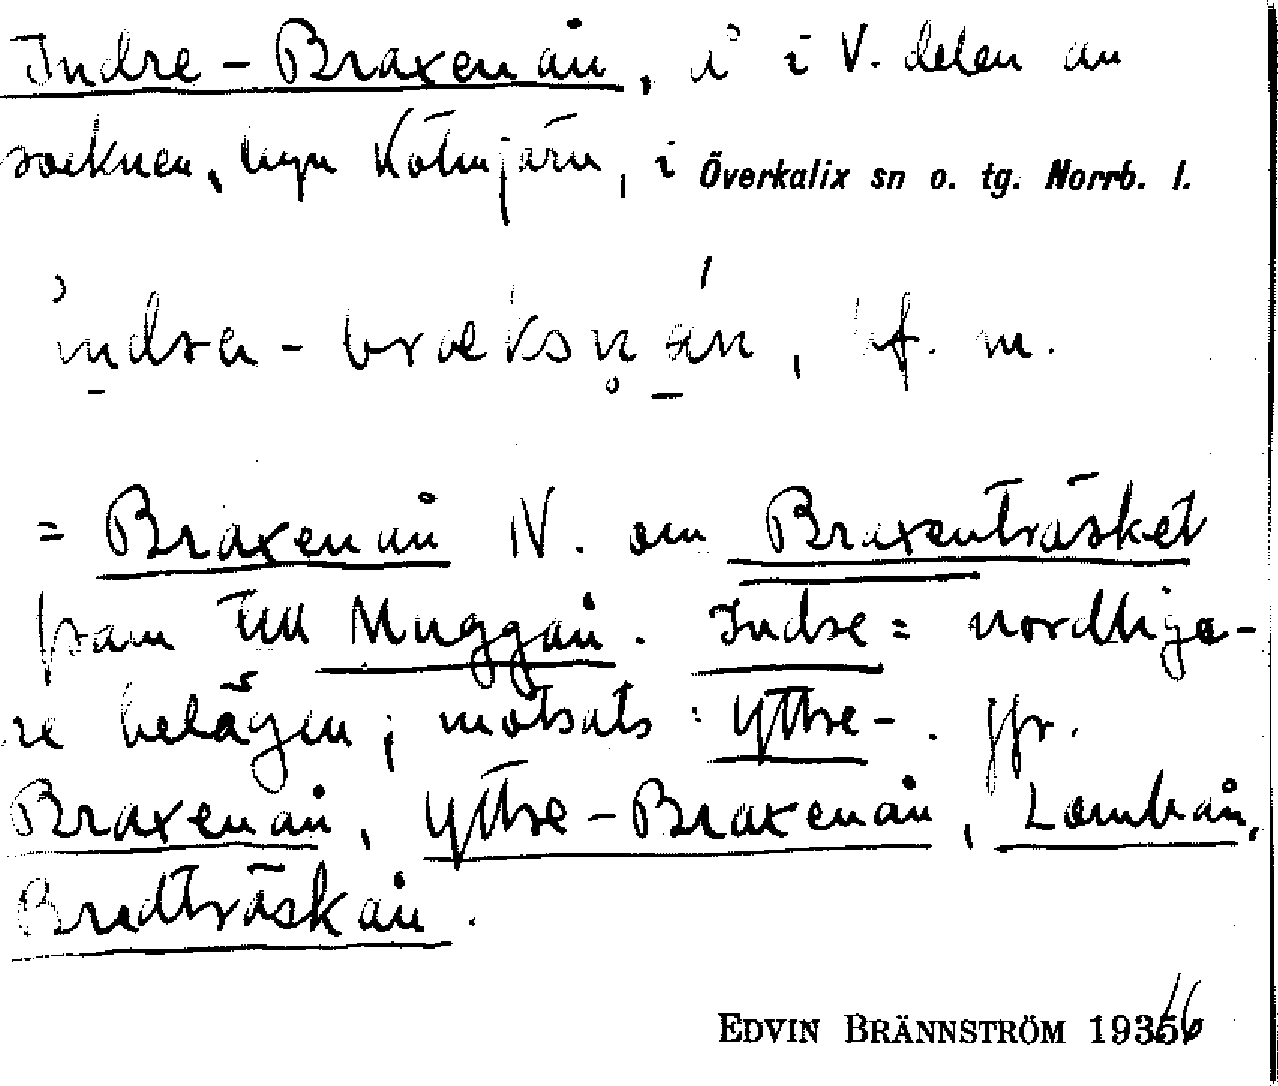 Indre-Braxenån, å i V. delen av
socknen, byn Kölmjärv, i Överkalix sn o. tg. Norrb. l.
bf. m.
= Braxenån N. om Braxenträsket
fram till Muggån. Indre = nordliga-
re belägen; motsats: Yttre-. Jfr.
Braxenån, Yttre-Braxenån, Lombån,
Bredträskån.
EDVIN BRÄNNSTRÖM 1936